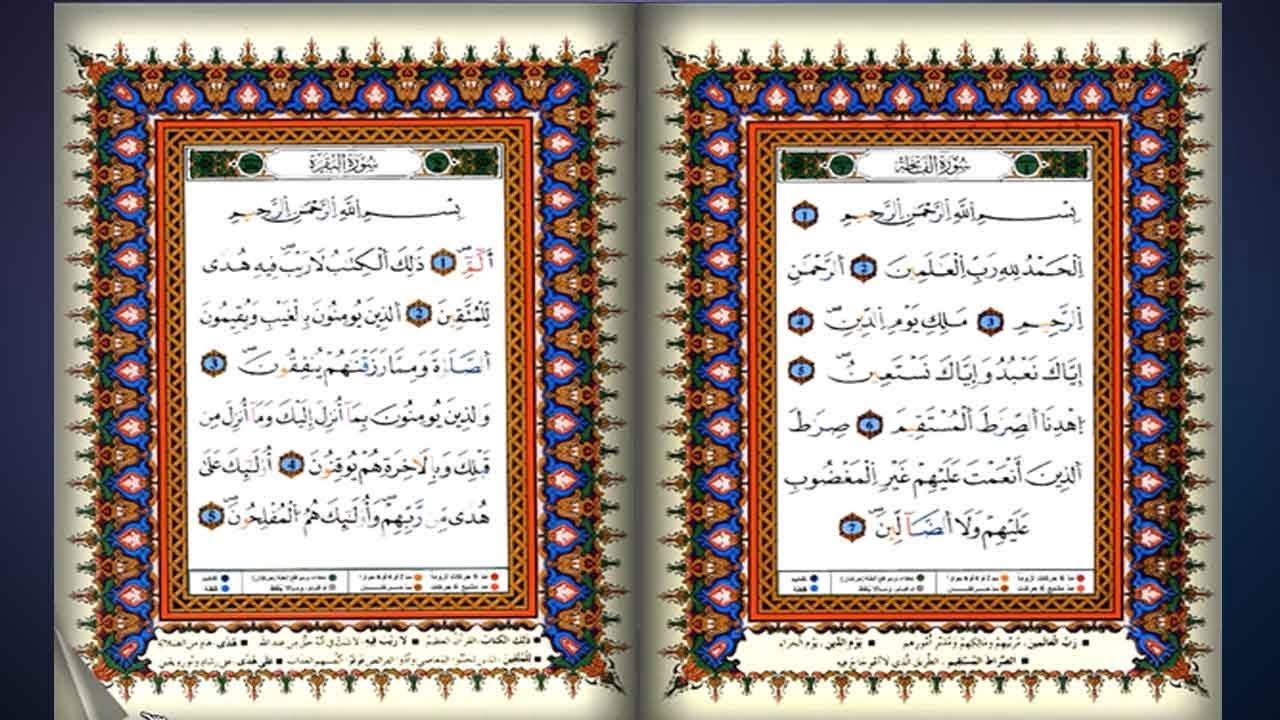 سُورَةُ الفَاتِحَةِ
بِسْمِ اللَّهِ الرَّحْمَٰنِ الرَّحِيمِ 1
الْحَمْدُ لِلَّهِ رَبِّ الْعَٰلَمِينَ 2 الرَّحْمَٰنِ
الرَّحِيمِ 3 مَٰلِكِ يَوْمِ الدِّينِ 4
إِيَّاكَ نَعْبُدُ وَإِيَّاكَ نَسْتَعِينُ 5
اهْدِنَا الصِّرَٰطَ الْمُسْتَقِيمَ 6 صِرَٰطَ
الَّذِينَ أَنْعَمْتَ عَلَيْهِمْ غَيْرِ الْمَغْضُوبِ
عَلَيْهِمْ وَلَا الضَّآلِّينَ 7
رَبِّ العَالَمِين: مُرَبِّيهِمْ وَمَالِكِهِمْ وَمُدَبِّرِ أُمُورِهِمْ ■ يَوْمِ الدِّينِ: يَوْمِ الجَزَاءِ
الصِّرَاطَ المُسْتَقِيمَ: الطَّرِيقَ الَّذِي لَا اعْوِجَاجَ فِيهِ
سُورَةُ البَقَرَةِ
بِسْمِ اللَّهِ الرَّحْمَٰنِ الرَّحِيمِ
الٓمٓ 1 ذَٰلِكَ الْكِتَٰبُ لَا رَيْبَ ۛ فِيهِ هُدًى
لِّلْمُتَّقِينَ 2 الَّذِينَ يُومِنُونَ بِالْغَيْبِ وَيُقِيمُونَ
الصَّلَوٰةَ وَمِمَّا رَزَقْنَٰهُمْ يُنفِقُونَ 3
وَالَّذِينَ يُومِنُونَ بِمَا أُنزِلَ إِلَيْكَ وَمَا أُنزِلَ مِن
قَبْلِكَ وَبِالَاخِرَةِ هُمْ يُوقِنُونَ 4 أُوْلَٰٓئِكَ عَلَىٰ
هُدًى مِّن رَّبِّهِمْ وَأُوْلَٰٓئِكَ هُمُ الْمُفْلِحُونَ 5
ذلك الكتاب: القرآن العظيم ■ لا ريب فيه